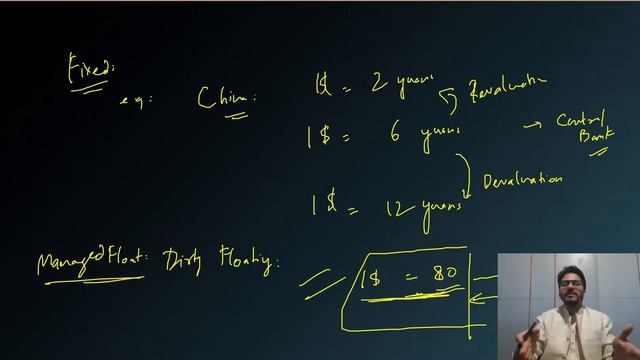 Fixed:
eg: China:
1$ = 2 yuans
Revaluation
1$ = 6 yuans → Central Bank
Devaluation
1$ = 12 yuans
Managed Float: Dirty Floating:
1$ = 80